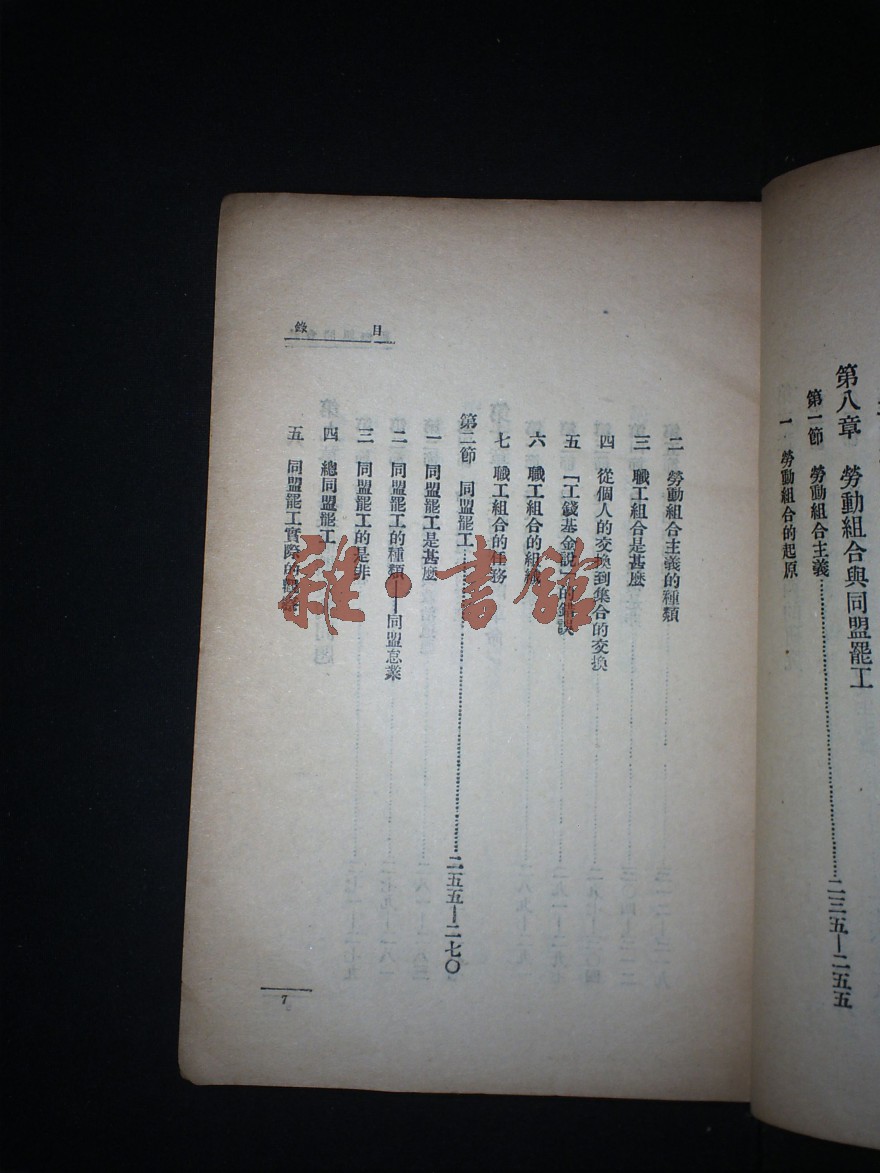 第八章 勞動組合與同盟罷工
第一節 勞動組合主義……二三五—二五五
一 勞動組合的起原
目錄
二 勞動組合主義的種類
三 職工組合是甚麼
四 從個人的交換到集合的交換
五 「工錢基金說」的錯誤
六 職工組合的組織
七 職工組合的任務
第二節 同盟罷工……二五五—二七〇
一 同盟罷工是甚麼
二 同盟罷工的種類——同盟怠業
三 同盟罷工的是非
四 總同盟罷工
五 同盟罷工實際的
7
雜·書館